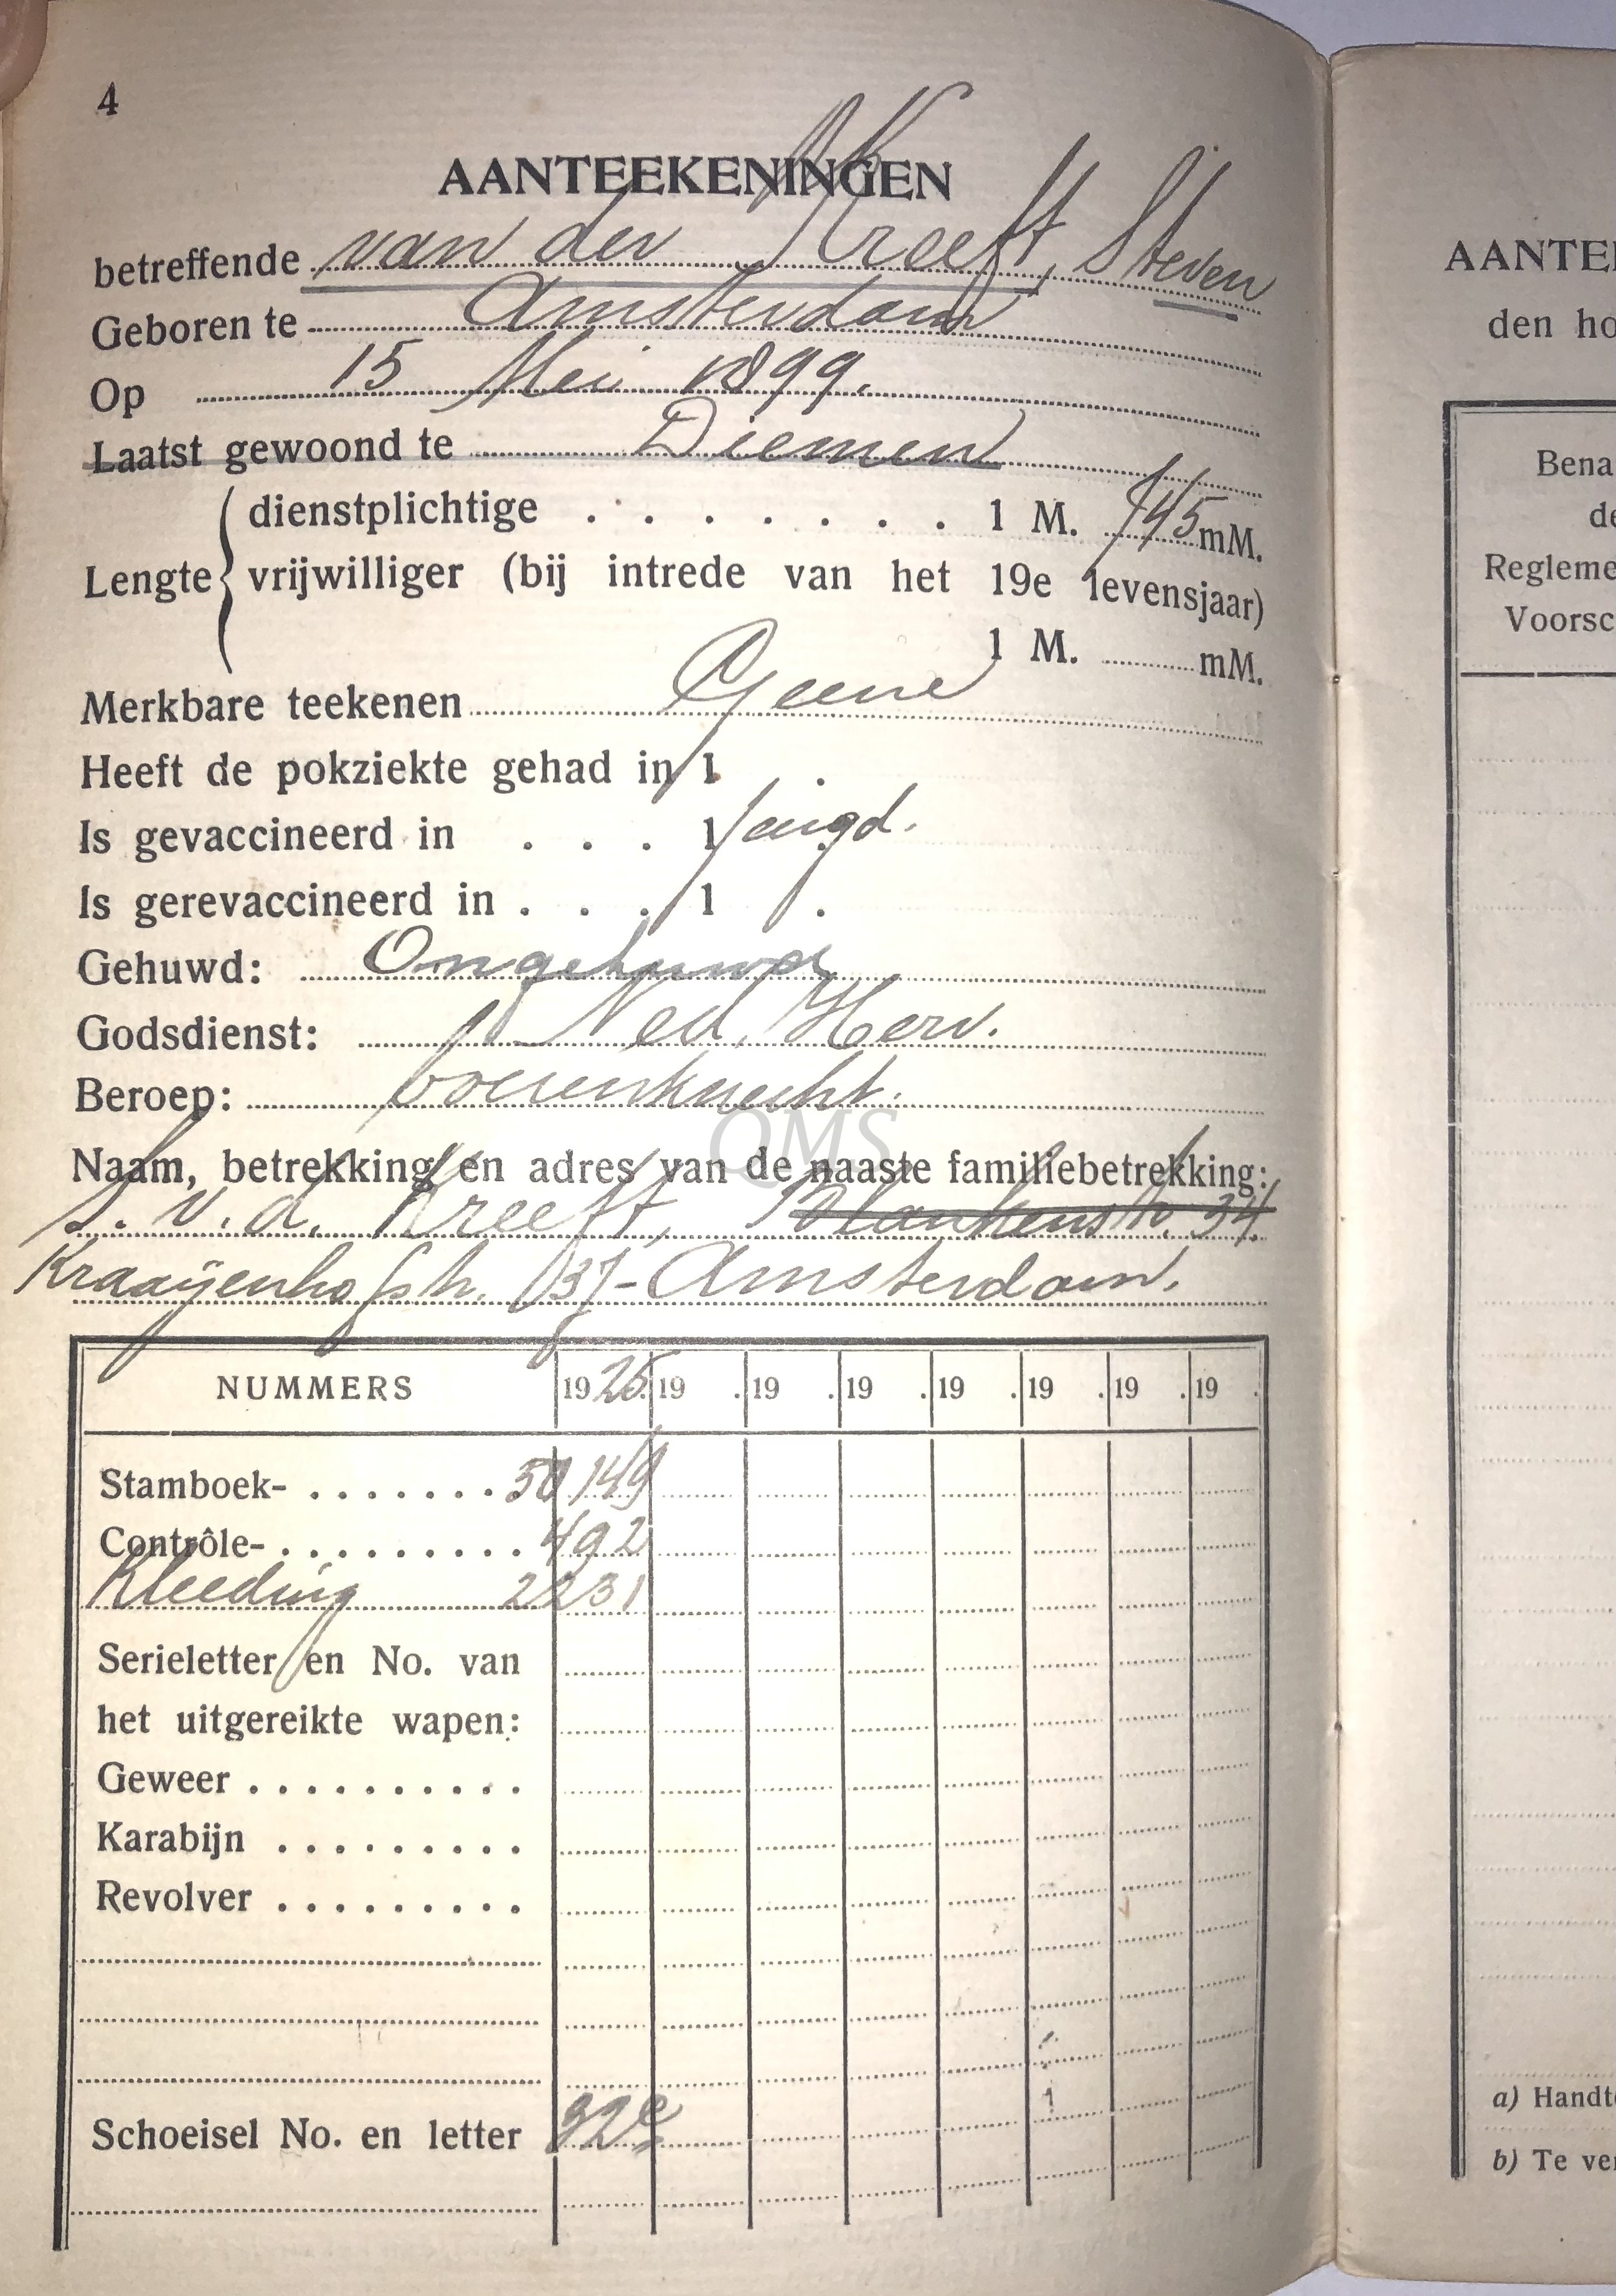 4
AANTEEKENINGEN
betreffende van der Kreeft, Steven
Geboren te Amsterdam
Op 15 Mei 1899.
Laatst gewoond te Diemen
Lengte dienstplichtige . . . . . . . 1 M. 745 mM.
vrijwilliger (bij intrede van het 19e levensjaar)
1 M. mM.
Merkbare teekenen Geene
Heeft de pokziekte gehad in 1 .
Is gevaccineerd in . . . 1 Jeugd.
Is gerevaccineerd in . . . 1 .
Gehuwd: Ongehuwd
Godsdienst: Ned. Herv.
Beroep: boerenknecht.
QMS
Naam, betrekking en adres van de naaste familiebetrekking:
S. v. d. Kreeft, Blankenstr. 34
137 - Amsterdam.
NUMMERS 1925. 19 . 19 . 19 . 19 . 19 . 19 . 19 .
Stamboek- . . . . . . . 50149
Contrôle- . . . . . . . . . 492
Kleeding 2231
Serieletter en No. van
het uitgereikte wapen:
Geweer . . . . . . . . . .
Karabijn . . . . . . . . .
Revolver . . . . . . . . .
Schoeisel No. en letter
AANTEE
den ho
Bena
de
Regleme
Voorsc
a) Handt
b) Te ve